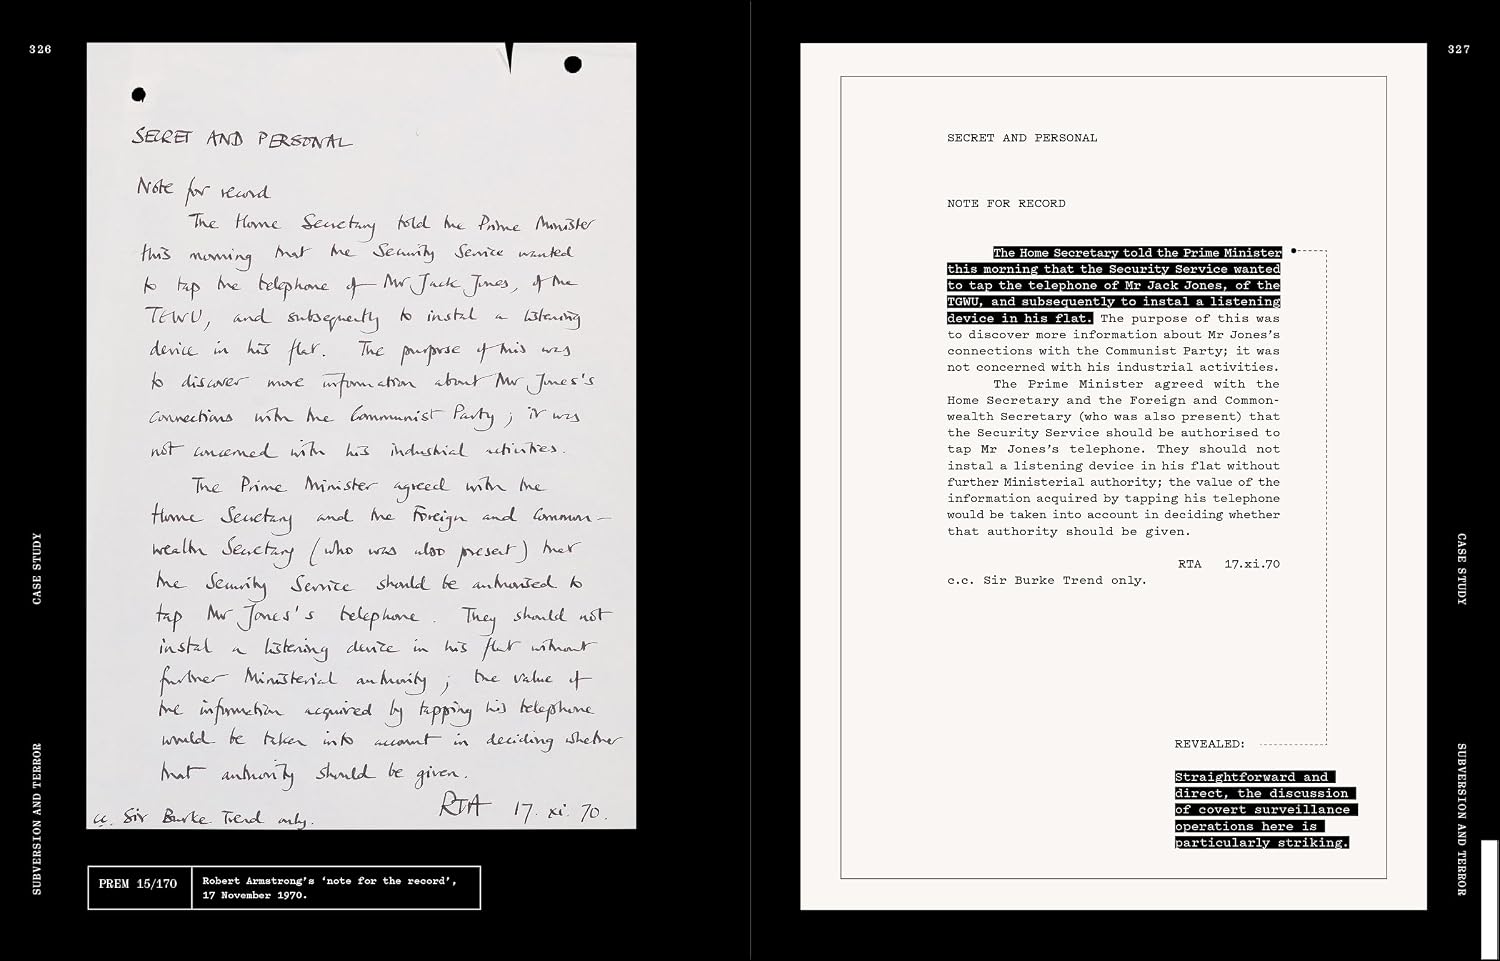 326
SECRET AND PERSONAL
Note for record
The Home Secretary told the Prime Minister
this morning that the Security Service wanted
to tap the telephone of Mr Jack Jones, of the
TGWU, and subsequently to instal a listening
device in his flat. The purpose of this was
to discover more information about Mr Jones's
connections with the Communist Party; it was
not concerned with his industrial activities.
The Prime Minister agreed with the
Home Secretary and the Foreign and Common-
wealth Secretary (who was also present) that
the Security Service should be authorised to
tap Mr Jones's telephone. They should not
instal a listening device in his flat without
further Ministerial authority; the value of
the information acquired by tapping his telephone
would be taken into account in deciding whether
that authority should be given.
RTA 17.xi.70.
cc. Sir Burke Trend only.
CASE STUDY
SUBVERSION AND TERROR
PREM 15/170
Robert Armstrong's ‘note for the record’,
17 November 1970.
327
SECRET AND PERSONAL
NOTE FOR RECORD
The Home Secretary told the Prime Minister
this morning that the Security Service wanted
to tap the telephone of Mr Jack Jones, of the
TGWU, and subsequently to instal a listening
device in his flat. The purpose of this was
to discover more information about Mr Jones's
connections with the Communist Party; it was
not concerned with his industrial activities.
The Prime Minister agreed with the
Home Secretary and the Foreign and Common-
wealth Secretary (who was also present) that
the Security Service should be authorised to
tap Mr Jones's telephone. They should not
instal a listening device in his flat without
further Ministerial authority; the value of the
information acquired by tapping his telephone
would be taken into account in deciding whether
that authority should be given.
RTA 17.xi.70
c.c. Sir Burke Trend only.
REVEALED:
Straightforward and
direct, the discussion
of covert surveillance
operations here is
particularly striking.
CASE STUDY
SUBVERSION AND TERROR